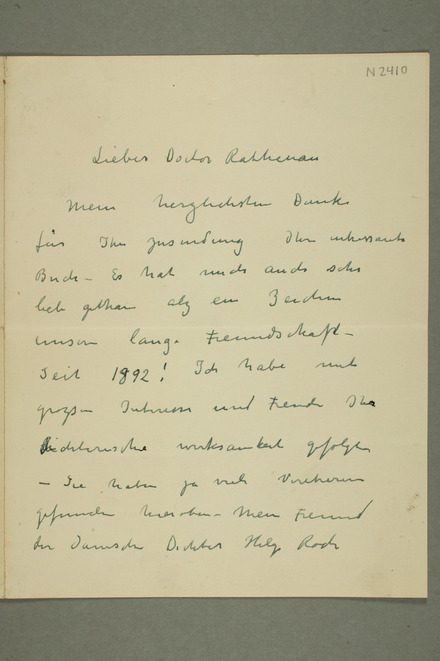 N 2410
Lieber Doctor Rathenau
Mein herzlichsten Dank
für Ihr zusendung Ihr interessante
Buch – Es hat mich auch sehr
lieb gethan als ein Zeichen
unser lange Freundschaft –
Seit 1892! Ich habe mit
grosse Interesse und Freude Ihr
dichterische wirksamkeit gefolgt
– Sie haben ja viele Verehrer
gefunden hieroben – Mein Freund
der Dänische Dichter Helge Rode